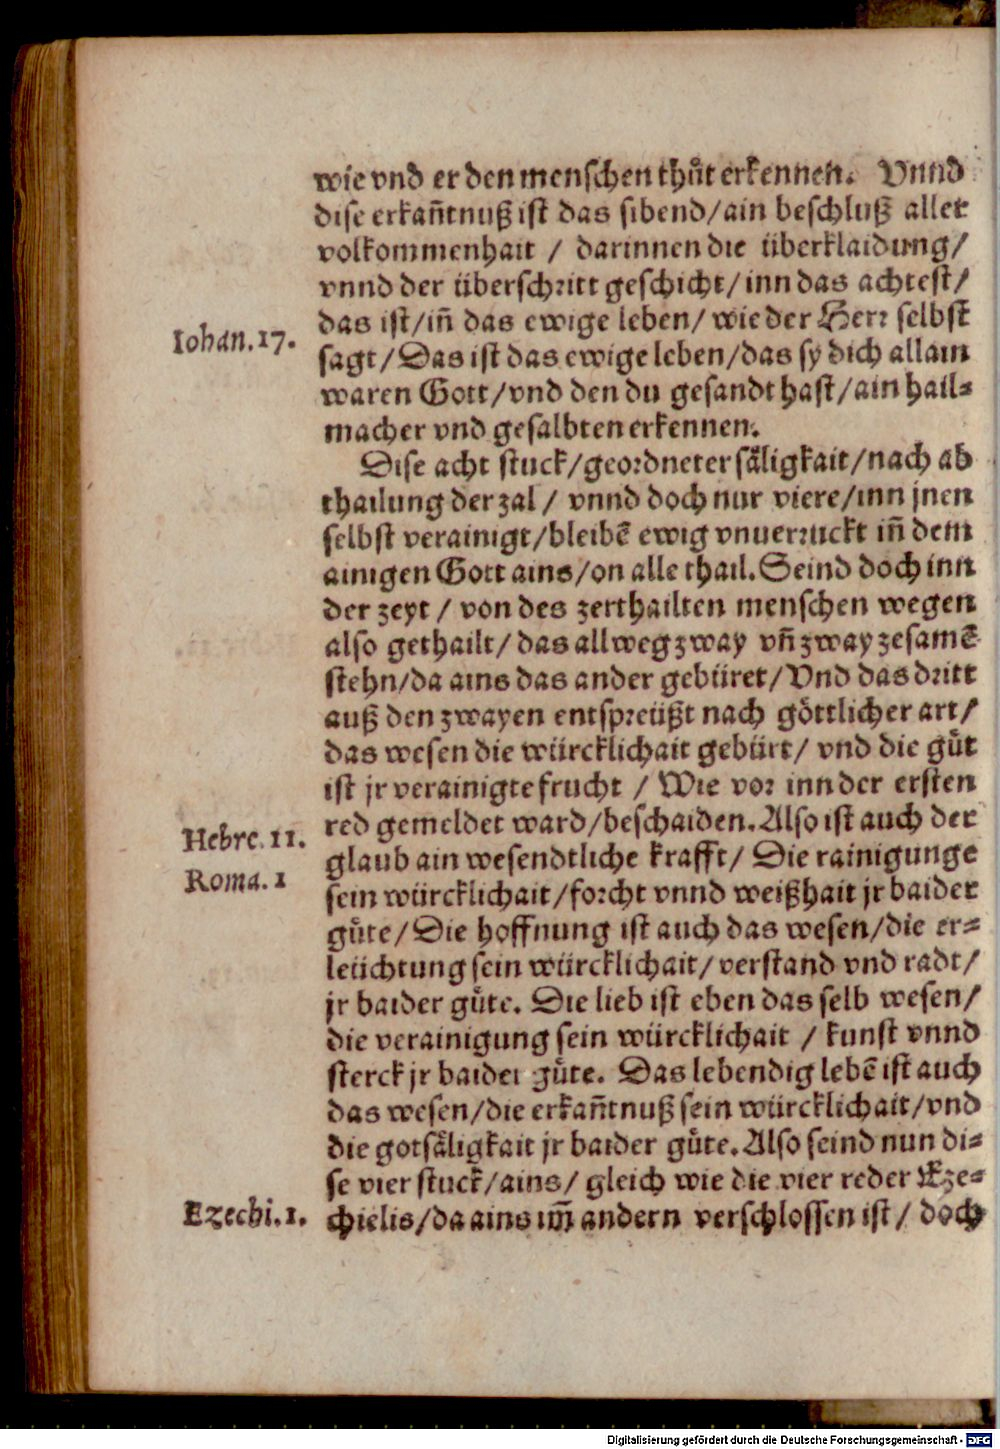 wie vnd er den menschen thůt erkennen. Vnnd
dise erkañtnuß ist das sibend/ain beschluß aller
volkommenhait / darinnen die überklaidung/
vnnd der überschritt geschicht/inn das achtest/
das ist/iñ das ewige leben/ wie der Herr selbst
Iohan.17.
sagt/Das ist das ewige leben/das sy dich allain
waren Gott/vnd den du gesandt hast/ain hail-
macher vnd gesalbten erkennen.
Dise acht stuck/geordneter säligkait/nach ab
thailung der zal / vnnd doch nur viere/inn jnen
selbst verainigt/bleibē ewig vnuerruckt iñ dem
ainigen Gott ains/on alle thail. Seind doch inn
der zeyt / von des zerthailten menschen wegen
also gethailt/ das allweg zway vñ zway zesamē
stehn/da ains das ander gebüret/Vnd das dritt
auß den zwayen entspreüßt nach göttlicher art/
das wesen die würcklichait gebürt/ vnd die gůt
ist jr verainigte frucht / Wie vor inn der ersten
red gemeldet ward/beschaiden. Also ist auch der
Hebre.11.
glaub ain wesendtliche krafft/ Die rainigunge
Roma.1
sein würcklichait/forcht vnnd weißhait jr baider
gůte/Die hoffnung ist auch das wesen/die er-
leüchtung sein würcklichait/verstand vnd radt/
jr baider gůte. Die lieb ist eben das selb wesen/
die verainigung sein würcklichait / kunst vnnd
sterck jr baider gůte. Das lebendig lebē ist auch
das wesen/die erkañtnuß sein würcklichait/vnd
die gotsäligkait jr baider gůte. Also seind nun di-
se vier stuck/ains/ gleich wie die vier reder Eze-
Ezechi.1.
chielis/da ains im̃ andern verschlossen ist/ doch
Digitalisierung gefördert durch die Deutsche Forschungsgemeinschaft - DFG